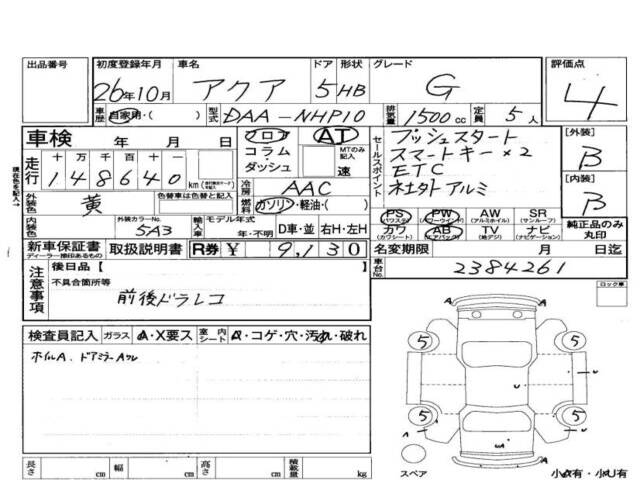 出品番号
初度登録年月 車名 ドア 形状 グレード 評価点
26年10月 アクア 5 HB G 4
車歴 自家用・( ) 型式 DAA-NHP10 排気量 1500cc 定員 5人
車検 年 月 日
フロア AT
コラム・ダッシュ
MTのみ記入
速
セールスポイント
プッシュスタート
スマートキー×2
ETC
社外アルミ
[外装]
B
[内装]
B
走行 十 万 千 百 十 一
148640 km
冷房 AAC
外装色 黄 色替車は色替と記入
燃料 ガソリン・軽油・( )
内装色 外装カラーNo. 5A3
輸入車 モデル年式 年・不明 D車・並 右H・左H
PS (パワステ) PW (パワーウインド) AW (アルミホイル) SR (サンルーフ)
カワ (カワシート) AB (エアバック) TV (地デジ) ナビ (ナビゲーション)
純正品のみ丸印
新車保証書 ディーラー捺印あるもの 取扱説明書 R券 ¥ 9,130
名変期限 月 日迄
車台No. 2384261
注意事項
後日品【
不具合箇所等
前後ドラレコ
ロック車
検査員記入 ガラス A・X要ス 室内シート A・コゲ・穴・汚れ・破れ
ホイルA、ドアミラーA
5 5
5 5
スペア
小A有・小U有
長さ cm 幅 cm 高さ cm 積載量 kg
現在色を記入